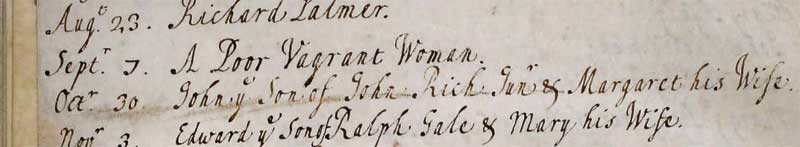 Augt 23. Richard Palmer.
Septr. 7. A Poor Vagrant Woman.
Octr. 30. John ye Son of John Rich Junr & Margaret his Wife.
Novr 3. Edward ye Son of Ralph Gale & Mary his Wife.